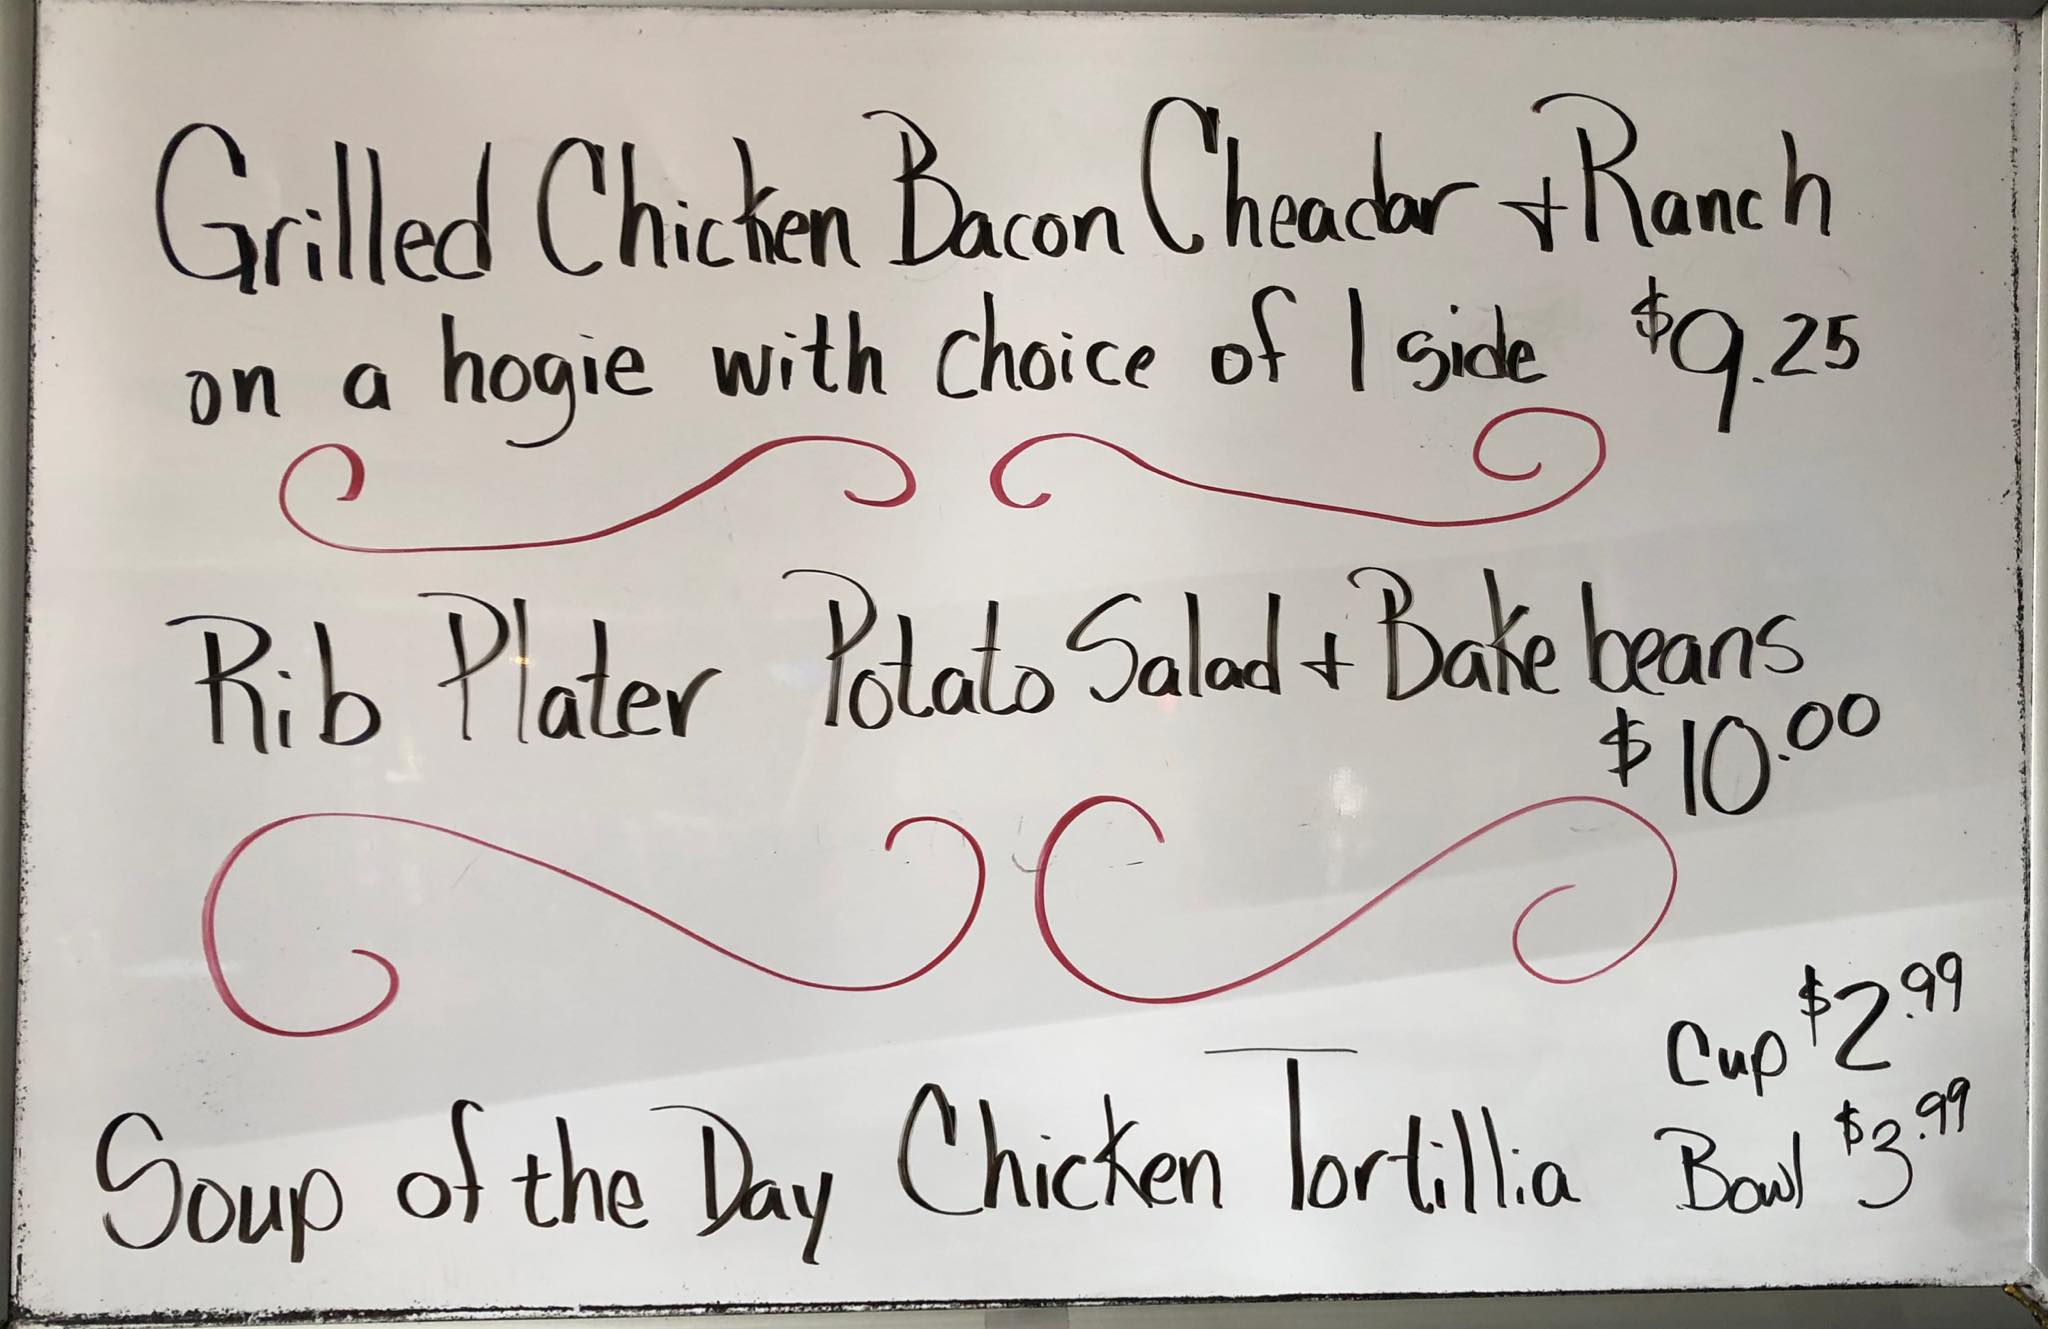 Grilled Chicken Bacon Cheadar + Ranch
on a hogie with choice of 1 side $9.25
Rib Plater Potato Salad + Bake beans
$10.00
Cup $2.99
Soup of the Day Chicken Tortillia Bowl $3.99